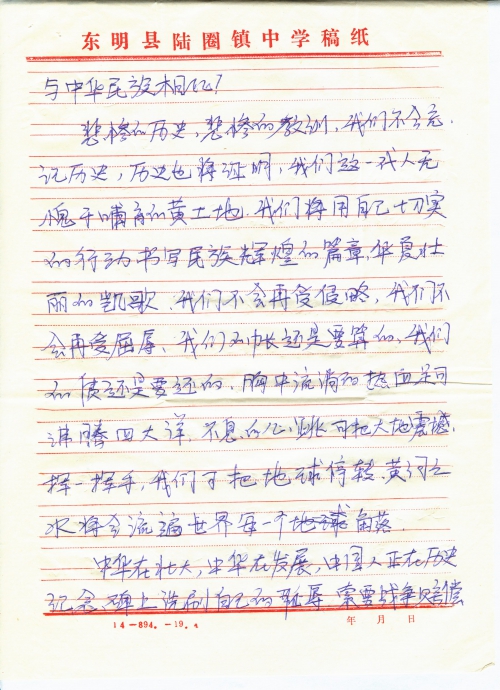 东明县陆圈镇中学稿纸
与中华民族相比?
悲惨的历史,悲惨的教训,我们不会忘
记历史,历史也将证明,我们这一代人无
愧于哺育的黄土地.我们将用自己切实
的行动书写民族辉煌的篇章,华夏壮
丽的凯歌.我们不会再受侵略,我们不
会再受屈辱、我们的帐还是要算的,我们
的债还是要还的,胸中流淌的热血足可
沸腾四大洋.不息的心跳可把大地震撼.
挥一挥手,我们可把地球停转.黄河之
水将会流遍世界每一个地球角落.
中华在壮大,中华在发展,中国人正在历史
纪念碑上洗刷自己的耻辱 索要战争赔偿
14-894.-19.4 年 月 日